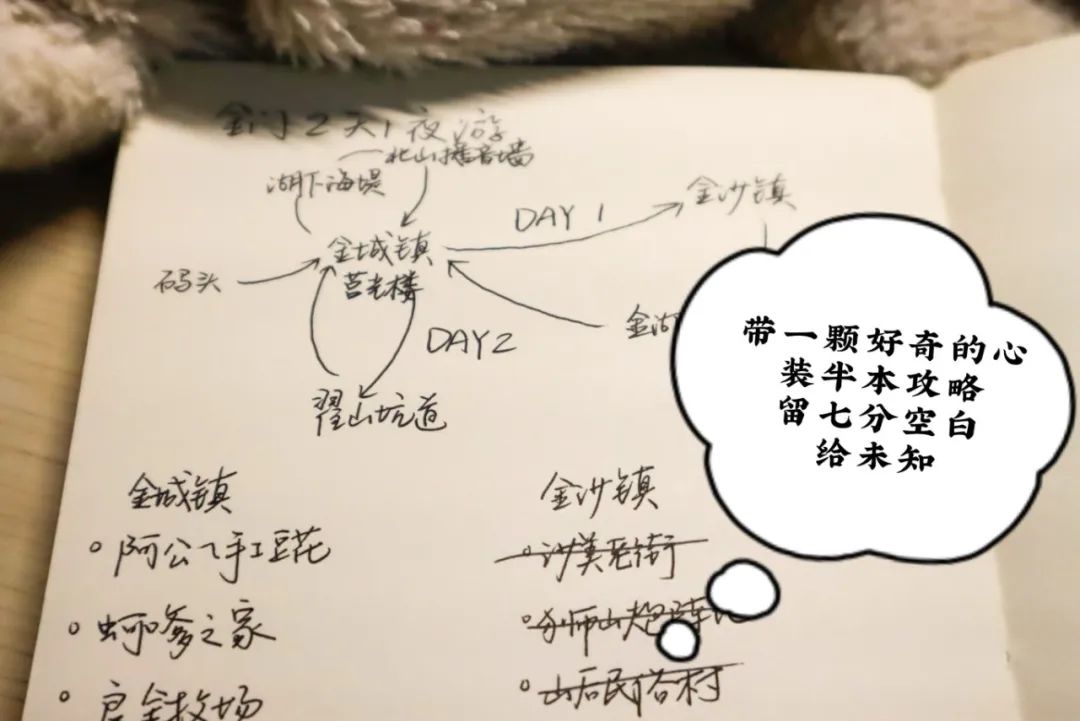 金门2天1夜游
北山播音墙
湖下海堤
DAY 1
金沙镇
金城镇
莒光楼
码头
金湖
DAY2
翟山坑道
带一颗好奇的心
装半本攻略
留七分空白
给未知
金城镇
金沙镇
阿公手工豆花
沙美老街
蚵爹之家
狮山炮阵地
山后民俗村
牧场